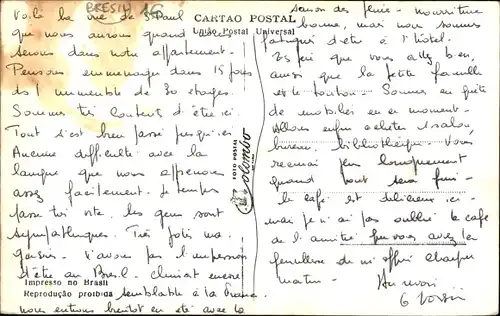 BRESIL 16
CARTAO POSTAL
União Postal Universal
Voilà la vue de St Paul
que nous aurons quand nous
serons dans notre appartement.
Pensons emménager dans 15 jours
ds 1 immeuble de 30 étages.
Sommes très contents d'être ici.
Tout s'est bien passé jusqu'ici
Aucune difficulté avec la
langue que nous apprenons
assez facilement. Le temps
passe très vite, les gens sont
sympathiques. Très jolis ma-
gasins. N'avons pas l'impression
d'être au Brésil. Climat encore
semblable à la France.
nous entrons bientôt en été avec la
saison des pluies - nourriture
bonne, mais nous sommes
fatigués d'être à l'hôtel.
J'espère que vous allez bien
ainsi que la petite famille
et le tonton. Sommes en quête
de mobilier en ce moment.
Allons enfin acheter 1 salon,
bureau, bibliothèque. Vous
écrirai plus longuement
quand tout sera fini -
le café est délicieux ici -
mais je n'ai pas oublié le café
de l'amitié que vous avez la
gentillesse de m'offrir chaque
matin. Au revoir
FOTO POSTAL
Colombo
Impresso no Brasil
Reprodução proibida